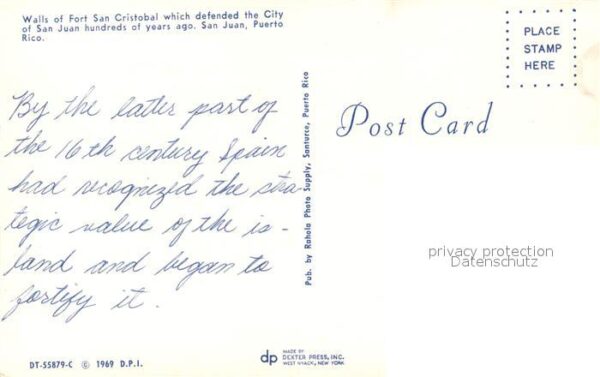 Walls of Fort San Cristobal which defended the City
of San Juan hundreds of years ago. San Juan, Puerto
Rico.
PLACE
STAMP
HERE
By the latter part of
the 16th century Spain
had recognized the stra
tegic value of the is-
land and began to
fortify it.
Pub. by Rahola Photo Supply, Santurce, Puerto Rico
Post Card
privacy protection
Datenschutz
DT-55879-C © 1969 D.P.I.
dp
MADE BY
DEXTER PRESS, INC.
WEST NYACK, NEW YORK